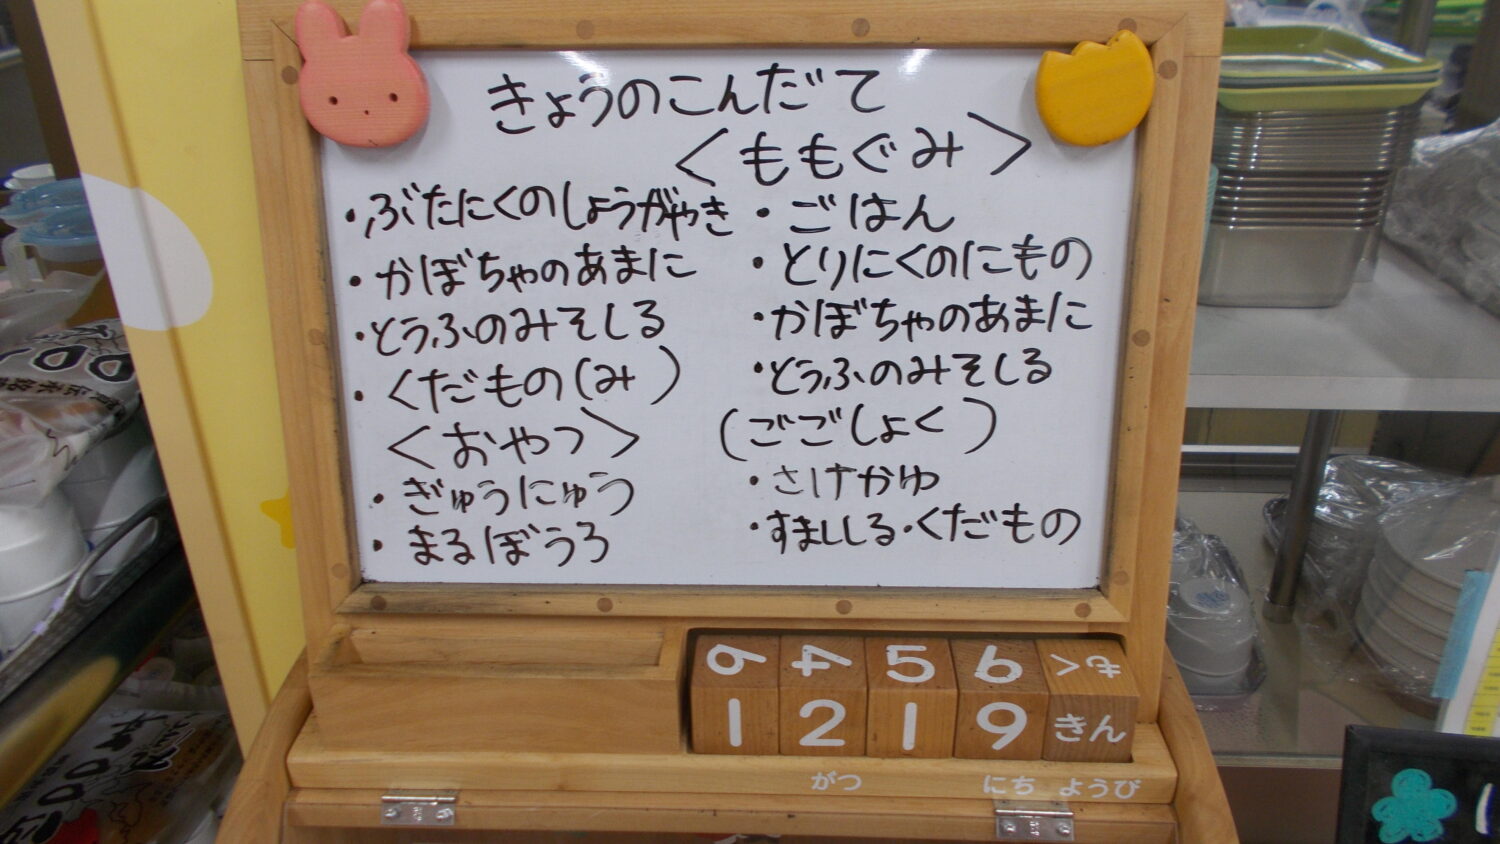 きょうのこんだて
<ももぐみ>
・ぶたにくのしょうがやき
・かぼちゃのあまに
・とうふのみそしる
・くだもの(み)
<おやつ>
・ぎゅうにゅう
・まるぼうろ
・ごはん
・とりにくのにもの
・かぼちゃのあまに
・とうふのみそしる
(ごごしょく)
・さけかゆ
・すましじる・くだもの
1 2 1 9 きん
がつ にち ようび